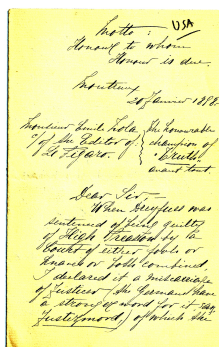 Motto: USA
Honour to whom
Honour is due.
Montreux
20 Janvier 1898.
Monsieur Emile Zola The honourable
of the Editor of champion of
Le Figaro. Truth
avant tout
Dear Sir,—
When Dreyfus was
sentenced of being guilty
of High Treason by a
Court of either fools or
knaves or both combined,
I declared it a miscarriage
of Justice (the Germans have
a strong word for it
Justizmord) of which the